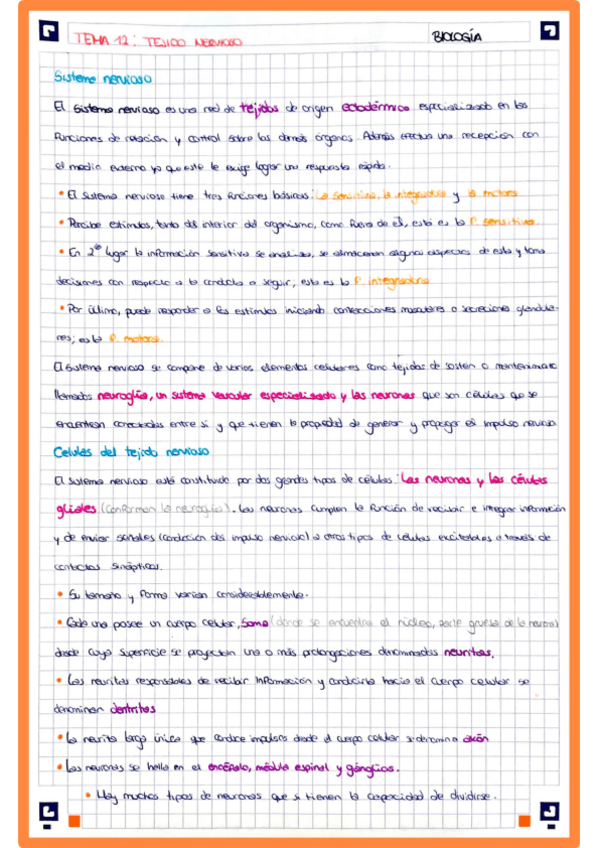 TEMA 12: TEJIDO NERVIOSO
BIOLOGÍA
Sistema nervioso
El sistema nervioso es una red de tejidos de origen ectodérmico especializado en las
funciones de relación y control sobre los demás órganos. Además efectua una recepción con
el medio externo ya que este le exige lograr una respuesta rápida.
• El sistema nervioso tiene tres funciones básicas: la sensitiva, la integradora y la motora
• Percibe estímulos, tanto del interior del organismo, como fuera de él, esta es la F. sensitiva.
• En 2º lugar la información sensitiva se analiza, se almacenan algunos aspectos de esta y toma
decisiones con respecto a la conducta a seguir, esta es la F. integradora
• Por último, puede responder a los estímulos iniciando contracciones musculares o secreciones glandula-
res; es la F. motora.
El sistema nervioso se compone de varios elementos celulares como tejidos de sostén o mantenimiento
llamados neuroglia, un sistema vascular especializado y las neuronas que son células que se
encuentran conectadas entre sí y que tienen la propiedad de generar y propagar el impulso nervioso
Celulas del tejido nervioso
El sistema nervioso está constituido por dos grandes tipos de células: Las neuronas y las células
gliales (conforman la neuroglia). Las neuronas cumplen la función de recibir e integrar información
y de enviar señales (conducción del impulso nervioso) a otros tipos de celulas excitables a través de
contactos sinápticos.
• Su tamaño y forma varían considerablemente.
• Cada una posee un cuerpo celular, soma (donde se encuentra el núcleo, parte gruesa de la neurona)
desde cuya superficie se proyectan una o más prolongaciones denominadas neuritas.
• Las neuritas responsables de recibir información y conducirla hacia el cuerpo celular se
denominan dentritas
• La neurita larga única que conduce impulsos desde el cuerpo celular se denomina axón
• Las neuronas se halla en el encéfalo, médula espinal y gánglios.
• Hay muchos tipos de neuronas que si tienen la capacidad de dividirse.